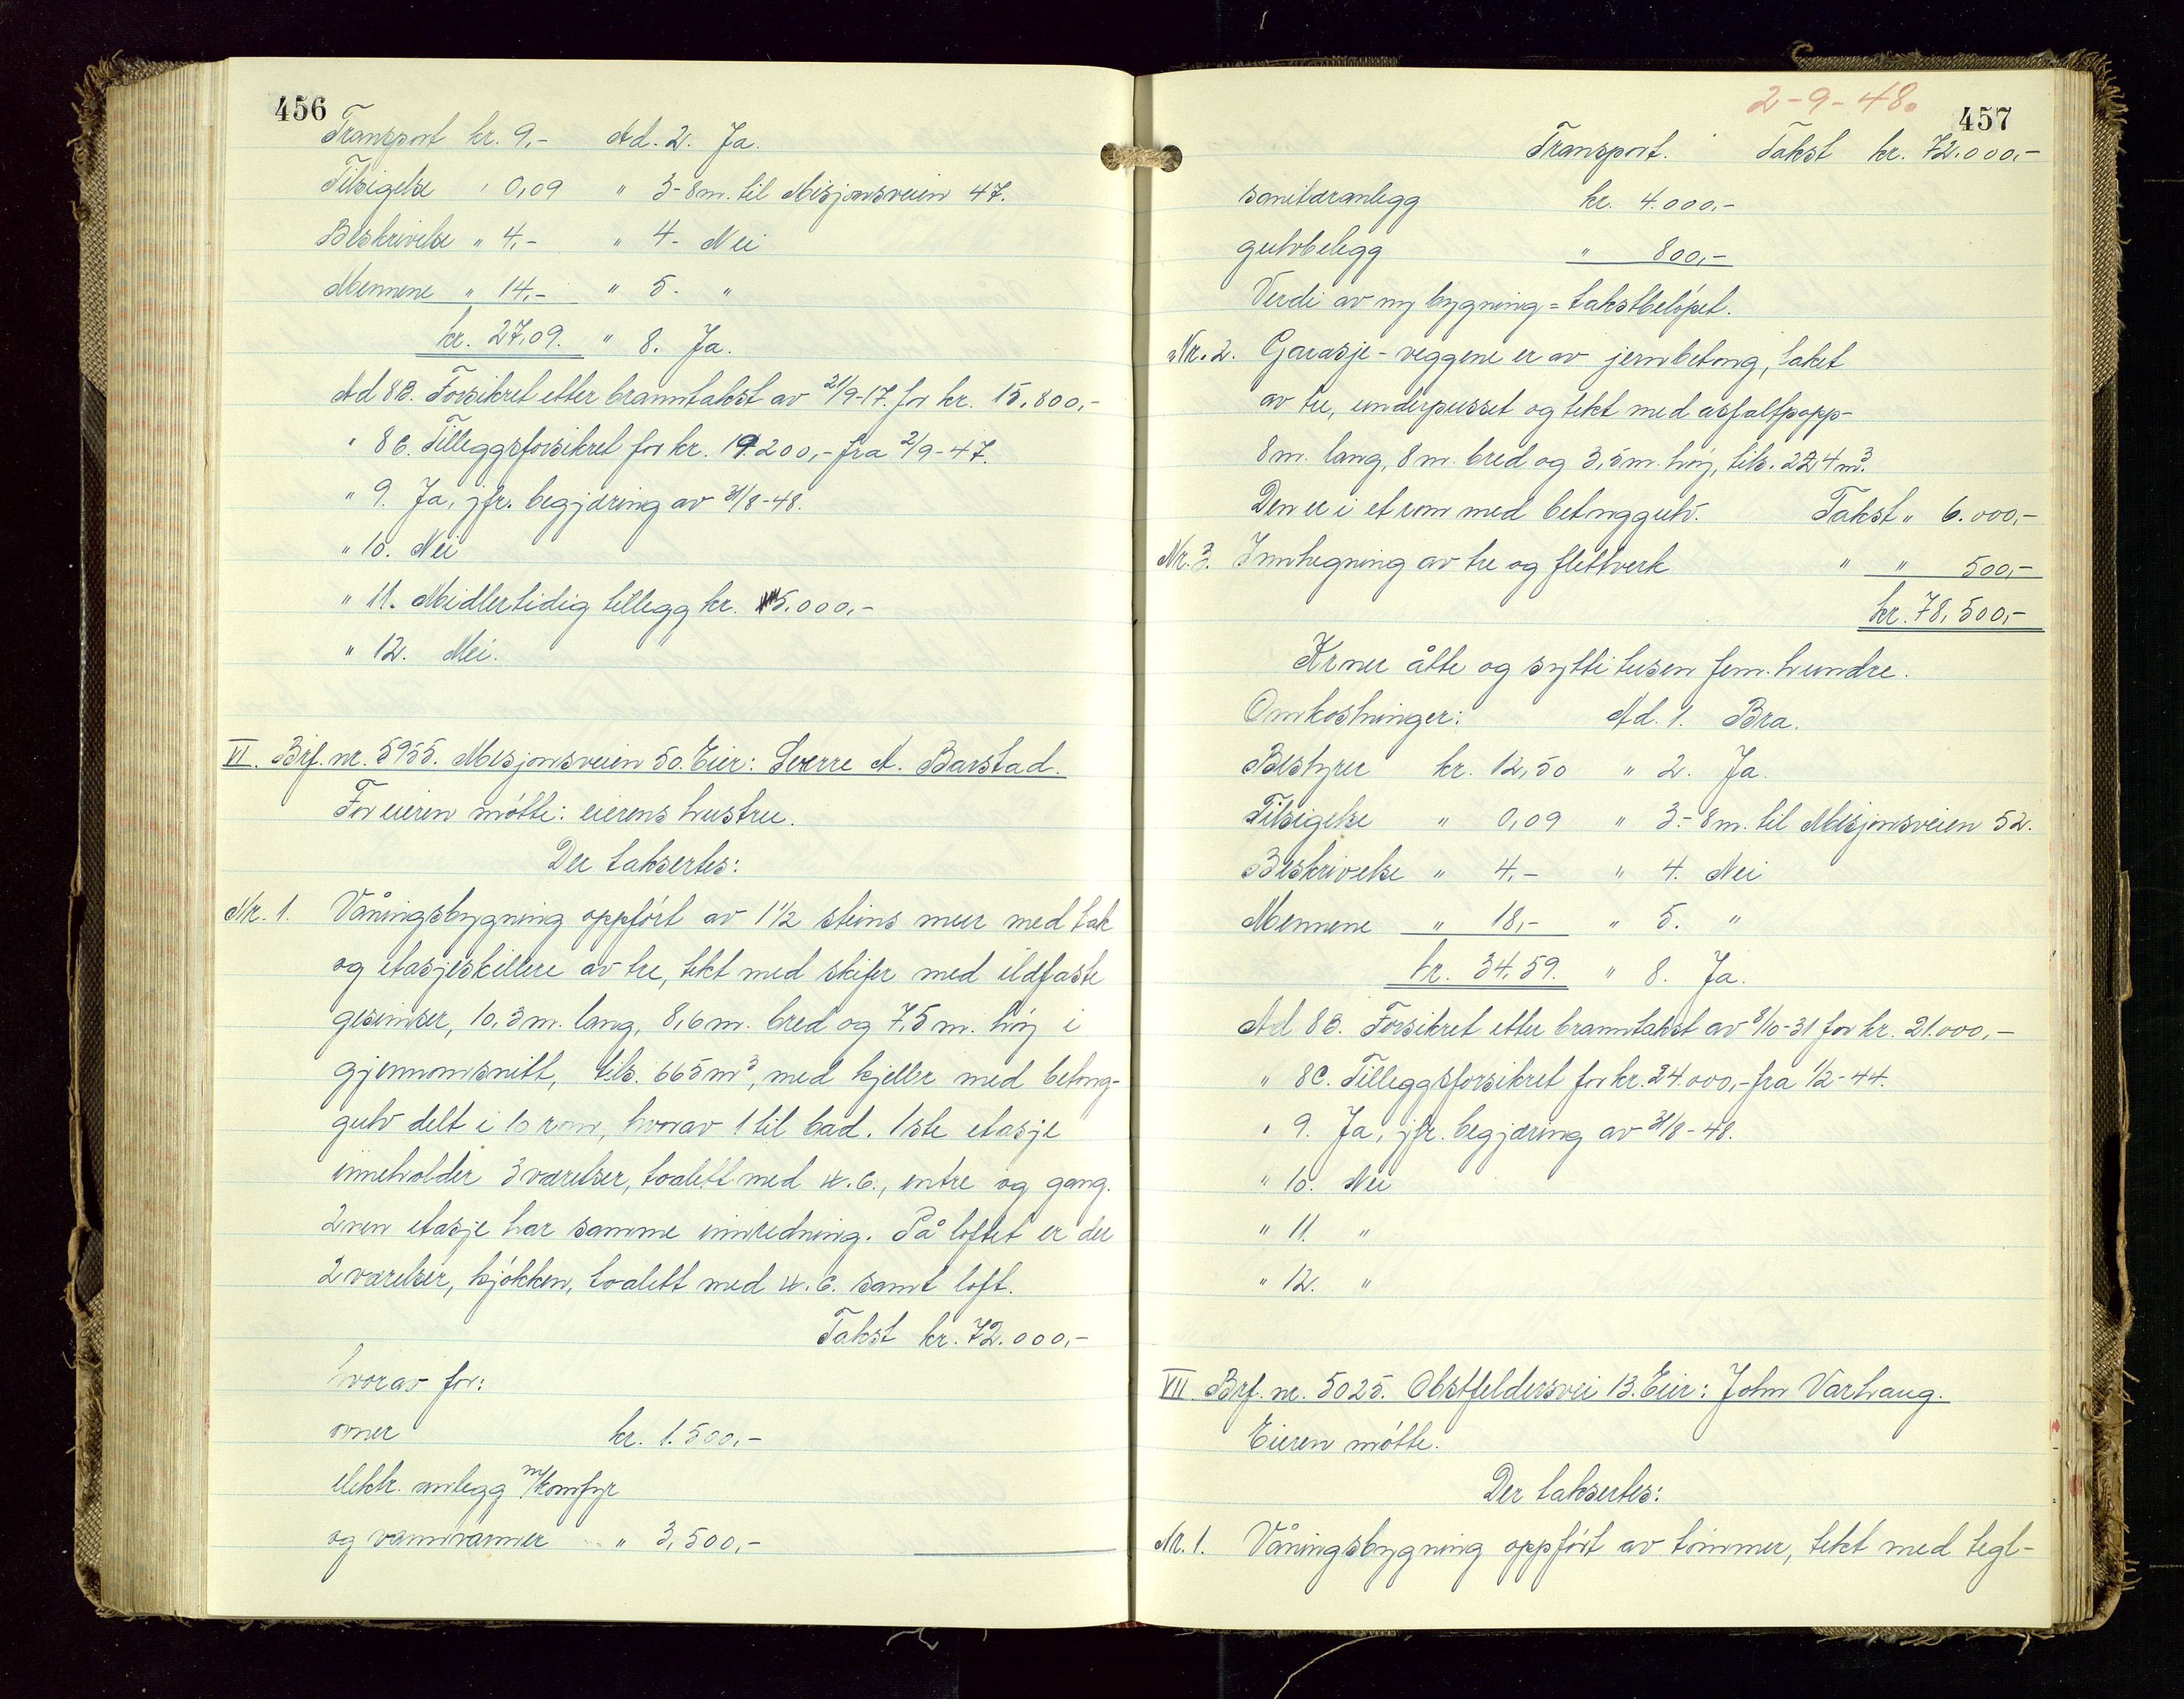 456
Transport kr. 9,- Ad. 2. Ja.
Tilsigelse " 0,09 " 3 - 8m. til Misjonsveien 47.
Beskrivelse " 4,- " 4 - Nei
Mennene " 14,- " 5 - "
kr. 27,09. " 8. Ja.
Ad 8B. Forsikret etter branntakst av 21/9-17. for kr. 15.800,-
" 8C. Tilleggsforsikret for kr. 19200,- fra 2/9-47.
" 9. Ja, jfr. begjæring av 31/8-48.
" 10. Nei
" 11. Midlertidig tillegg kr. 5.000,-
" 12. Nei.
VI. Brf. nr. 5955. Misjonsveien 50. Eier: Sverre A. Barstad.
For eieren møtte: eierens hustru.
Der taksertes:
Nr. 1. Våningsbygning oppført av 1 1/2 steins mur med tak
og etasjeskillere av tre, tekt med skifer med ildfaste
gesimser, 10,3 m. lang, 8,6 m. bred og 7,5 m. høy i
gjennomsnitt, tils. 665 m³, med kjeller med betong-
gulv delt i 10 rom, hvorav 1 til bad. 1ste etasje
inneholder 3 værelser, toalett med w.c., entre og gang.
2nen etasje har samme innredning. På loftet er der
2 værelser, kjøkken, toalett med w.c. samt loft.
Takst kr. 72.000,-
hvorav for:
ovner kr. 1.500,-
elektr. anlegg m/komfyr
og vannvarmer " 3,500,-
2-9-48.
457
Transport. Takst kr. 72.000,-
sanitæranlegg kr. 4.000,-
gulvbelegg " 800,-
Verdi av ny bygning = takstbeløpet.
Nr. 2. Garasje - veggene er av jernbetong, taket
av tre, underpusset og tekt med asfaltpapp-
8 m. lang, 8 m. bred og 3,5 m. høy, tils. 224 m³.
Den er i et rom med betonggulv. Takst " 6.000,-
Nr. 3. Innhegning av tre og flettverk " " 500,-
kr. 78,500,-
Kroner åtte og sytti tusen fem hundre.
Omkostninger: Ad. 1. Bra.
Bestyrer kr. 12,50 " 2. Ja.
Tilsigelse " 0,09 " 3 - 8m. til Misjonsveien 52.
Beskrivelse " 4,- " 4. Nei
Mennene " 18,- " 5. "
kr. 34,59. " 8. Ja.
Ad 8B. Forsikret etter branntakst av 8/10-31 for kr. 21.000,-
" 8C. Tilleggsforsikret for kr. 24.000,- fra 1/2-44.
" 9. Ja, jfr. begjæring av 31/8-48.
" 10. Nei
" 11. "
" 12. "
VII. Brf. nr. 5025. Obstfeldersvei 13. Eier: John Varhaug.
Eieren møtte.
Der taksertes:
Nr. 1. Våningsbygning oppført av tømmer, tekt med tegl-